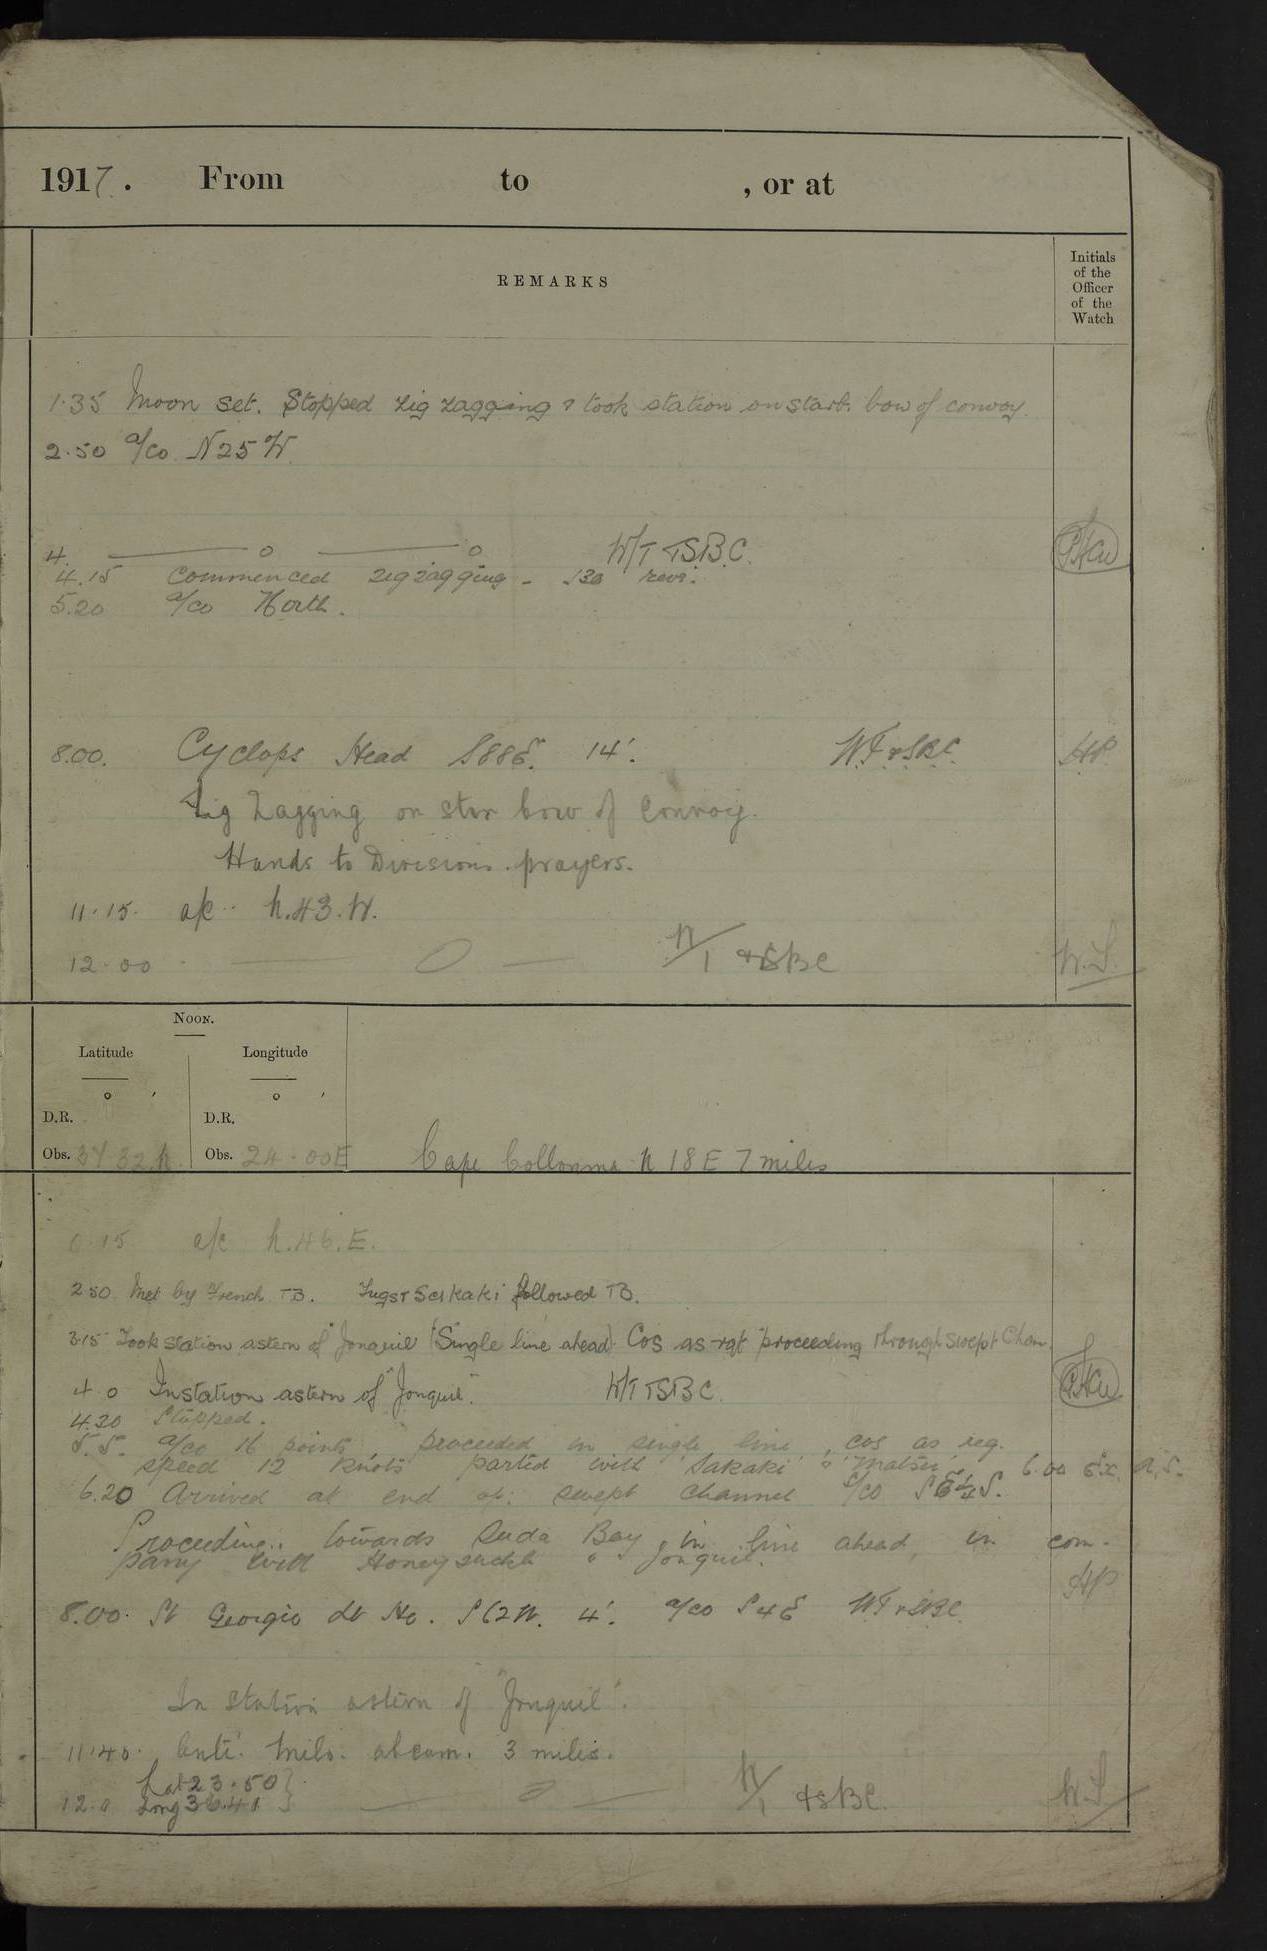 1917. From to , or at
REMARKS
Initials of the Officer of the Watch
1.35 Moon set. Stopped zig zagging & took station on starb. bow of convoy.
2.50 a/co N 25 W.
4. —— o —— o W/T TSBC.
4.15 Commenced zigzagging - 130 revs.
5.20 a/co North.
8.00. Cyclops Head S88E. 14'. WT & SBC. HP
Zig Zagging on star bow of Convoy.
Hands to Divisions. prayers.
11.15. a/c N.43.W.
12.00 — 0 — &SBC W.S.
NOON.
Latitude Longitude
° ' ° '
D.R. D.R.
Obs. 37 32 N Obs. 24.00E Cape Collonna N 18 E 7 miles
0.15 a/c N.46.E.
2.50 Met by French TB. followed TB.
3.15 Took station astern of "Jonquil" (Single line ahead) Cos as rqt proceeding through swept Chan.
4 0 In station astern of "Jonquil". W/T TSBC.
4.20 Stopped.
5.5. a/co 16 points, proceeded in single line, cos as req.
speed 12 knots parted with 'Sakaki' & 'Matsu' 6.00
6.20 Arrived at end of swept channel a/co
Proceeding towards Suda Bay, in line ahead, in com-
pany with Honeysuckle & Jonquil. HP
8.00. St Georgio Lt Ho. S62W. 4'. a/co S4E WT & SBC.
In station astern of "Jonquil".
11.40. Anti. Milo. abeam. 3 miles.
Lat 23.50 }
12.0 Long 36.41 } — 0 — &SBC. W.S.